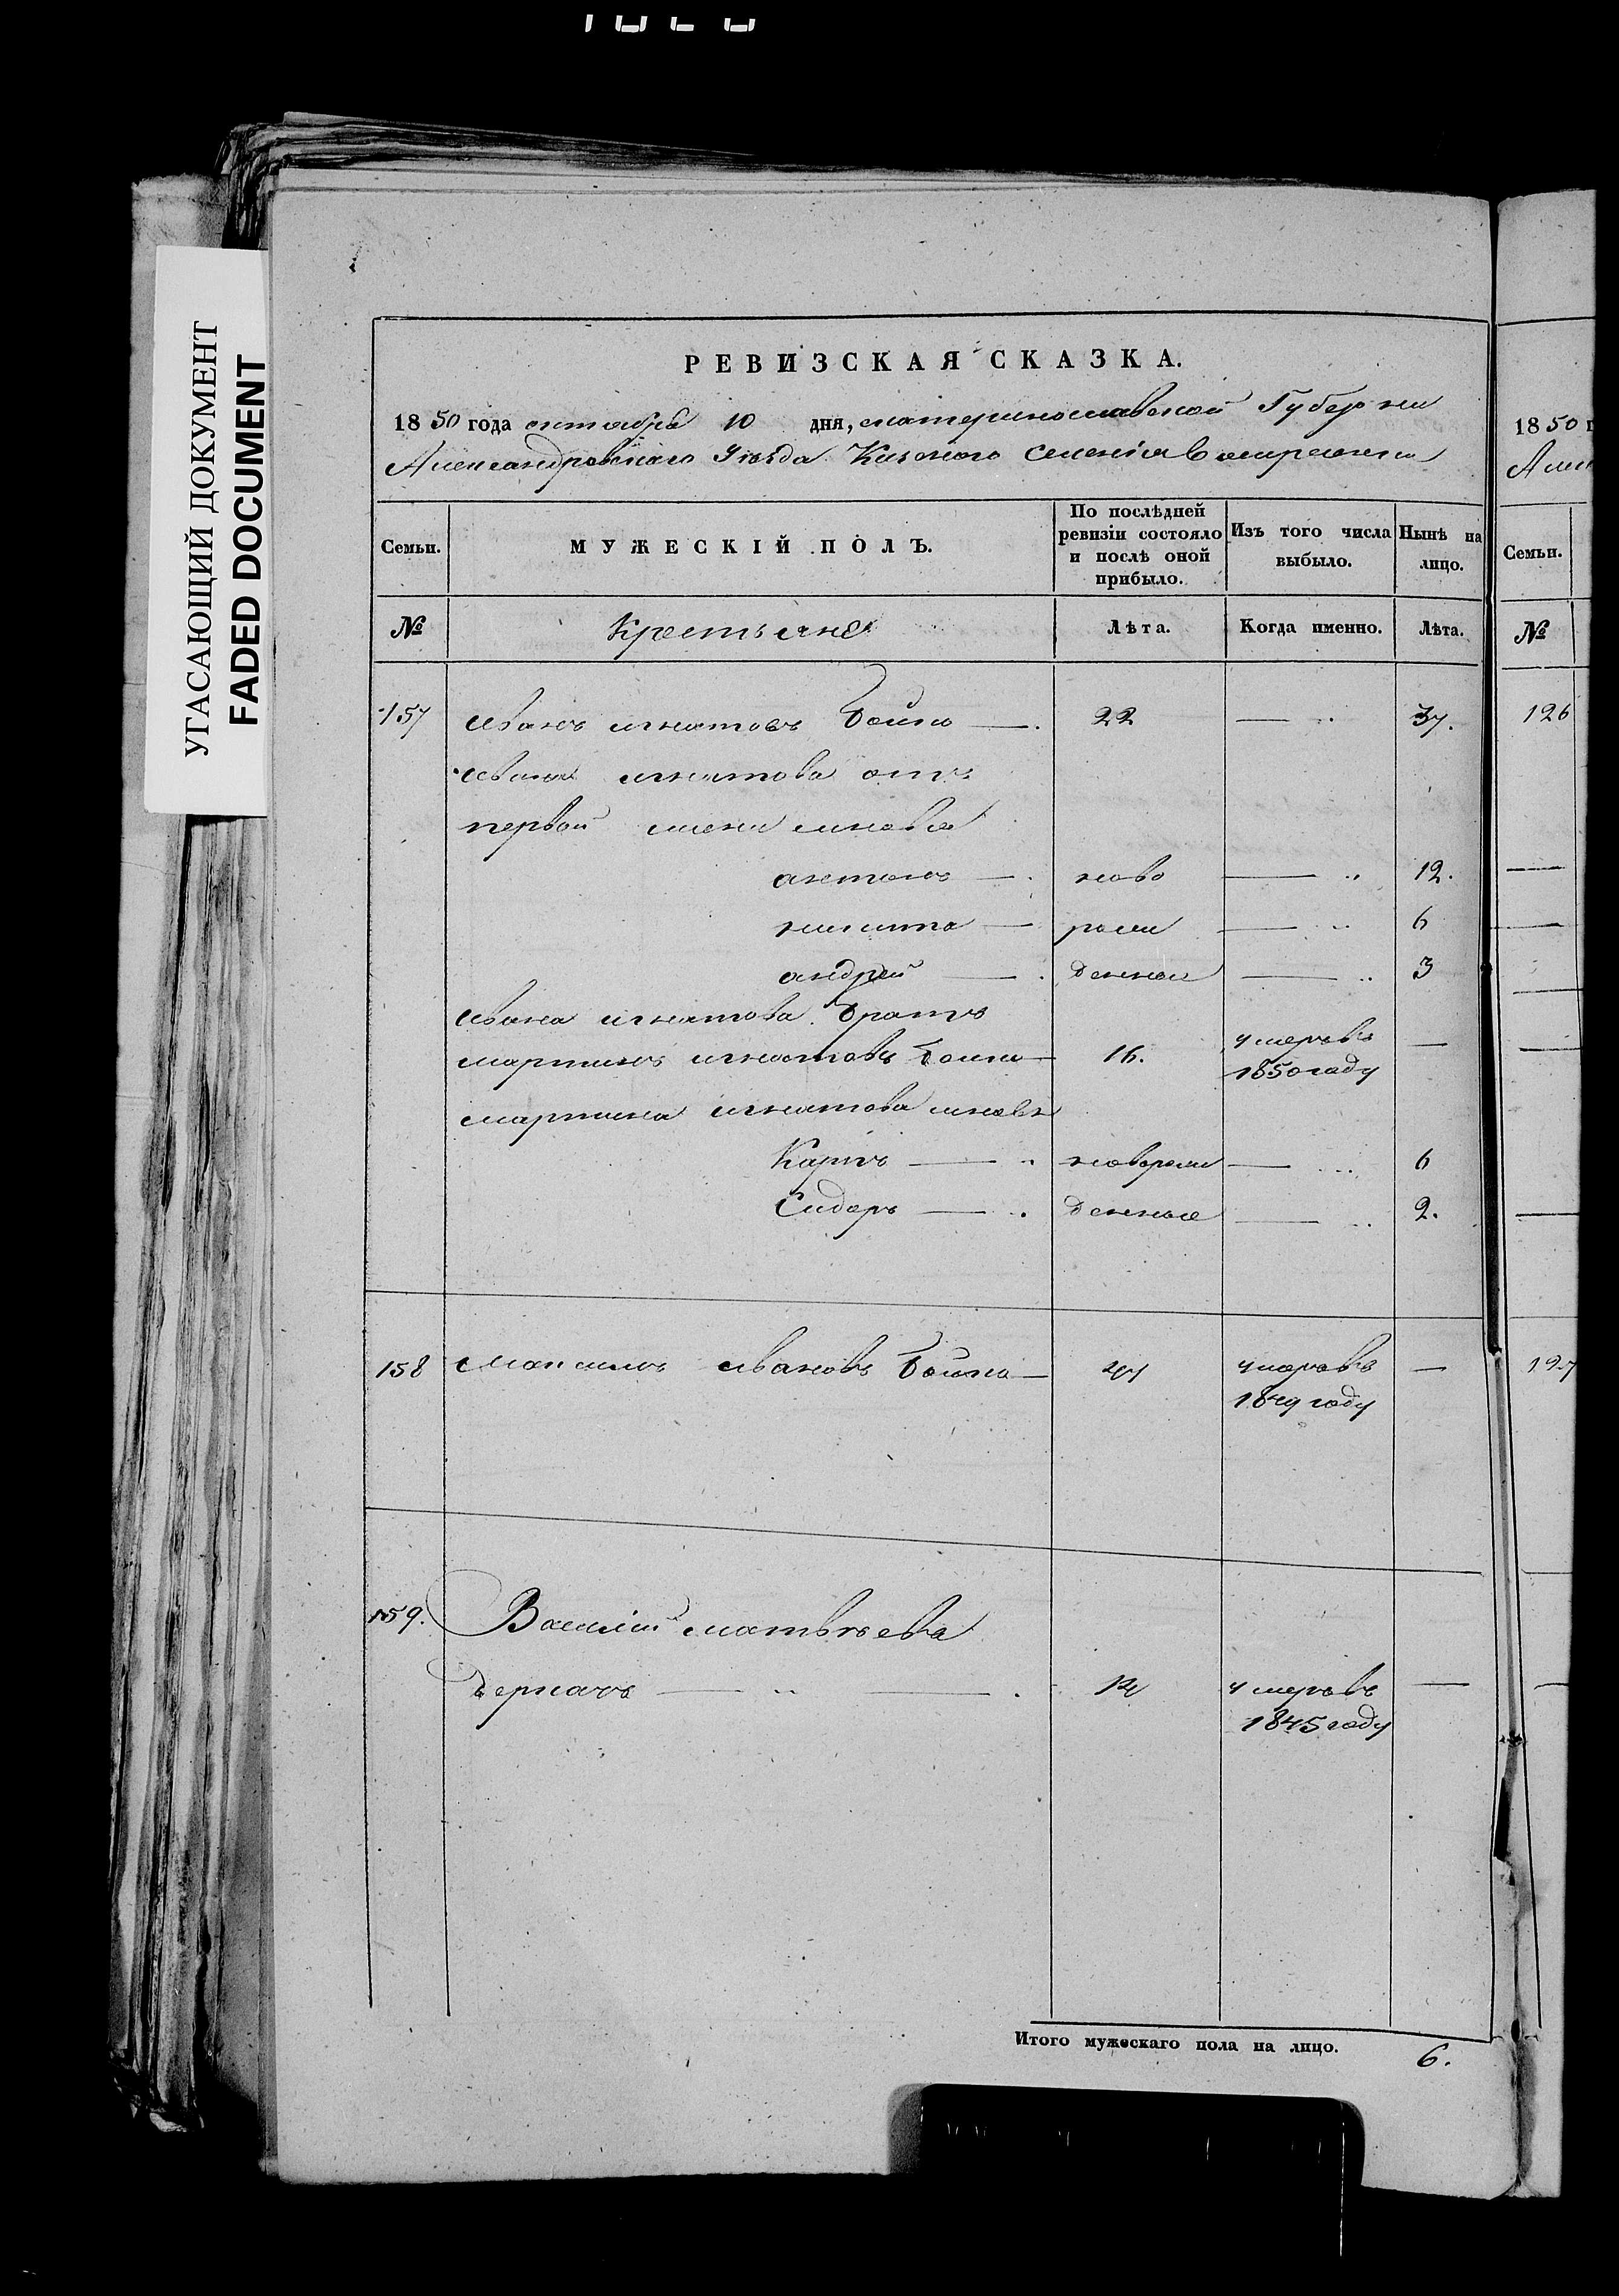 УГАСАЮЩИЙ ДОКУМЕНТ
FADED DOCUMENT
РЕВИЗСКАЯ СКАЗКА.
1850 года октября 10 дня, Екатеринославской Губернии
Александровского Уѣзда Казеного Селенія Воскресенки
Семьи.
МУЖЕСКІЙ ПОЛЪ.
По послѣдней ревизіи состояло и послѣ оной прибыло.
Изъ того числа выбыло.
Нынѣ на лицо.
№ Крестьяне Лѣта. Когда именно. Лѣта.
157 Иванъ игнатовъ Бойко — 22 — 37.
Ивана игнатова отъ
первой жени
антонъ — ново — 12.
никита — рож — 6
андрей — денные — 3
Ивана игнатова братъ
мартинъ игнатовъ Бойко — 16. умеръ въ —
1850 году
мартина игнатова
Карпъ — новорож — 6
Сидоръ — денные — 2.
158 Максимъ Ивановъ Бойко — умеръ въ —
1849 году
159. Василій матвѣева
Деркачъ — умеръ въ —
1845 году
Итого мужескаго пола на лицо. 6.
1850 г
Алек
Семьи.
№
126
127